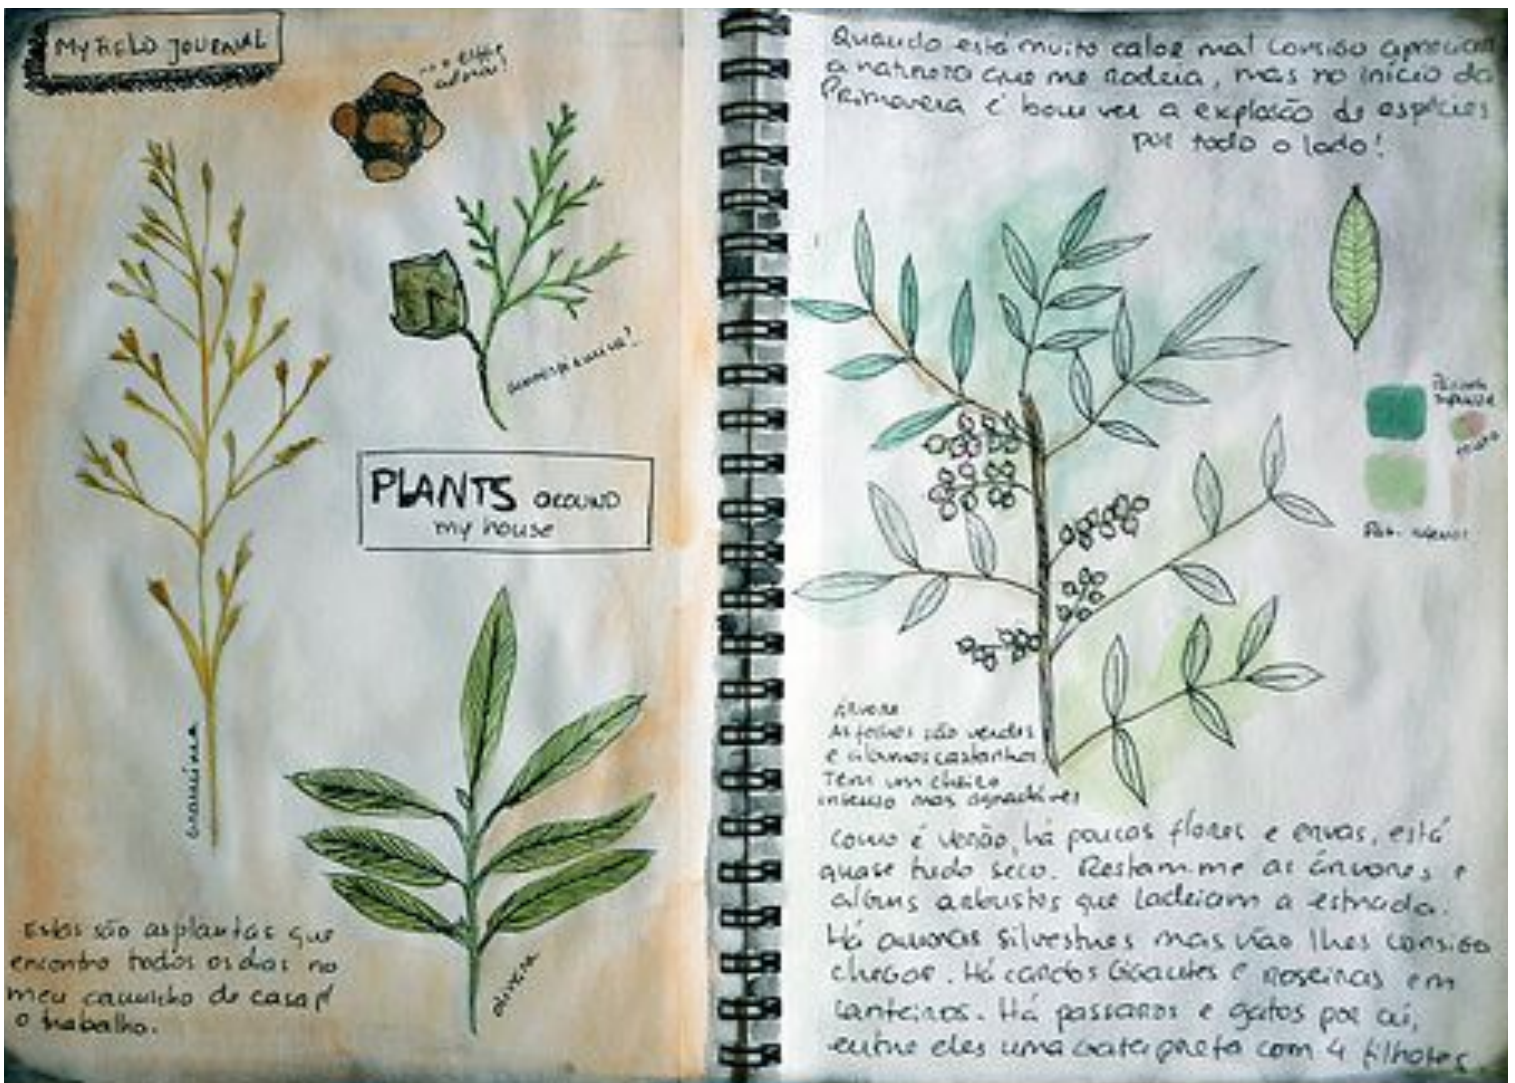 MY FIELD JOURNAL
... e cheira!
PLANTS AROUND
my house
gramínea
oliveira
Estas são as plantas que
encontro todos os dias no
meu caminho de casa p/
o trabalho.
Quando está muito calor mal consigo apreciar
a natureza que me rodeia, mas no início da
Primavera é bom ver a explosão de espécies
por todo o lado!
Árvore
As folhas são verdes
e castanhos
Tem um cheiro
intenso mas agradável
Como é verão, há poucas flores e ervas, está
quase tudo seco. Restam-me as árvores e
alguns arbustos que ladeiam a estrada.
Há amoras silvestres mas não lhes consigo
chegar. Há cardos gigantes e roseiras em
canteiros. Há passaros e gatos por aí,
entre eles uma gata preta com 4 filhotes